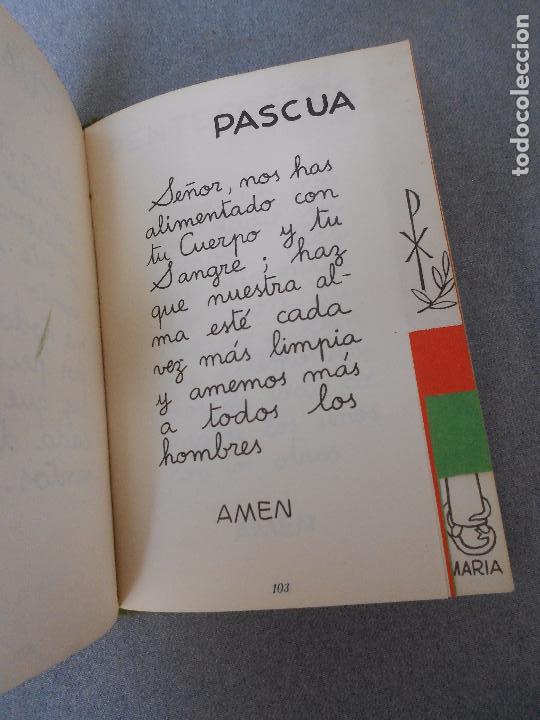 PASCUA
Señor, nos has
alimentado con
tu Cuerpo y tu
Sangre; haz
que nuestra al-
ma esté cada
vez más limpia
y amemos más
a todos los
hombres
AMEN
103
MARIA
todocoleccion.net